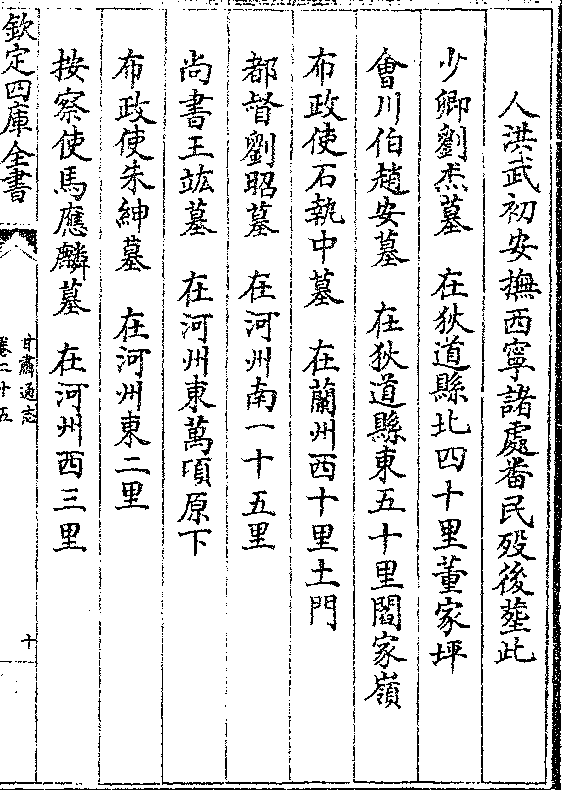 人洪武初安撫西寧諸處番民歿後塟此
少卿劉杰墓　在狄道縣北四十里董家坪
會川伯趙安墓　在狄道縣東五十里閻家嶺
布政使石執中墓　在蘭州西十里土門
都督劉昭墓　在河州南一十五里
尚書王竑墓　在河州東萬頃原下
布政使朱紳墓　在河州東二里
按察使馬應麟墓　在河州西三里
欽定四庫全書
甘肅通志
卷二十五
十